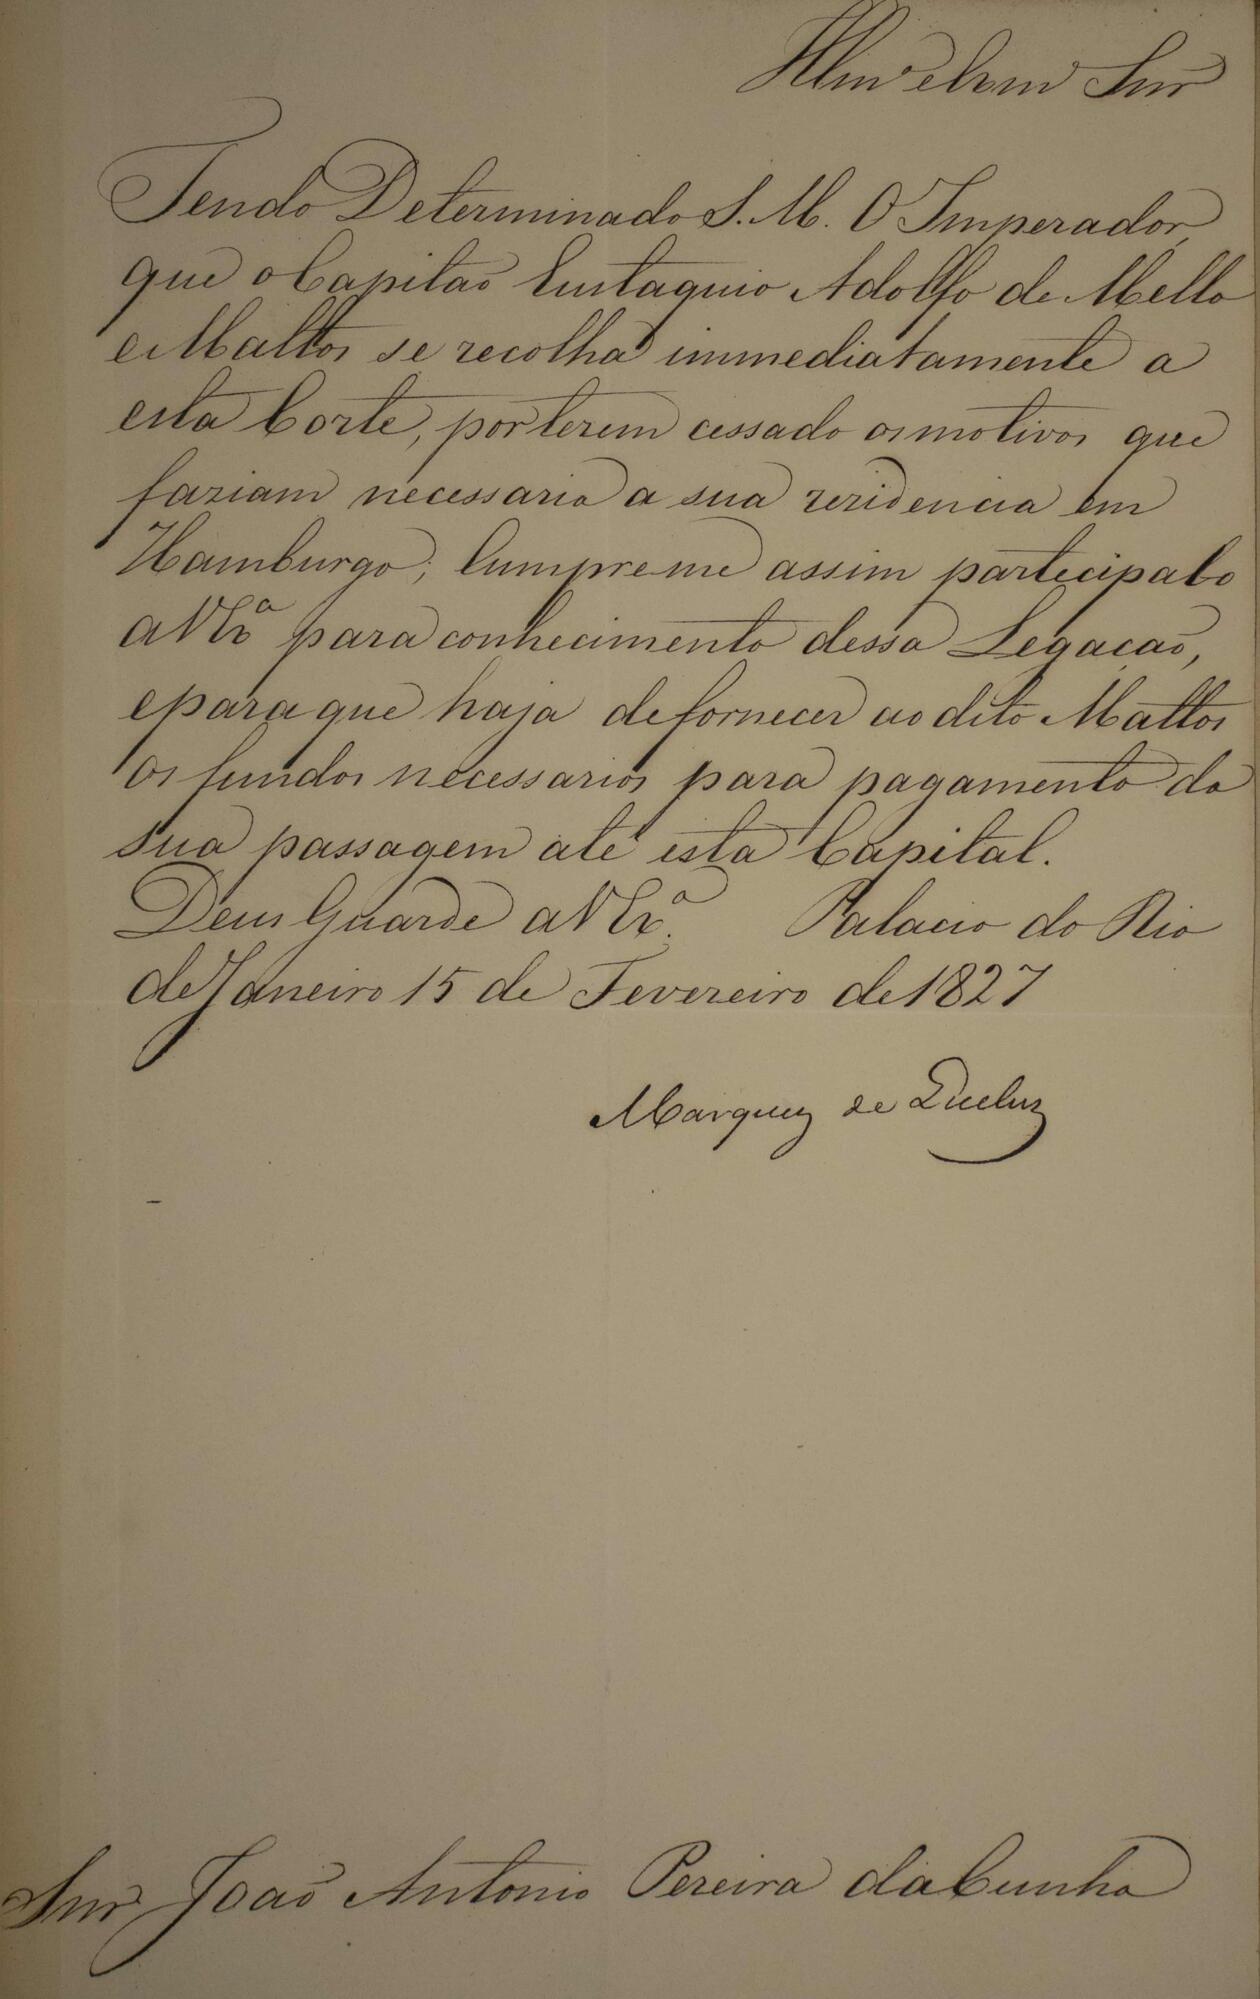 Illmo e Exmo Snr
Tendo Determinado S. M. O Imperador,
que o Capitaõ Eustaquio Adolfo de Mello
e Mattos se recolha immediatamente a
esta Corte, por terem cessado os motivos que
faziam necessaria a sua rezidencia em
Hamburgo; Cumpreme assim partecipalo
a VExª para conhecimento dessa Legaçaõ,
e para que haja de fornecer ao dito Mattos
os fundos necessarios para pagamento da
sua passagem até esta Capital.
Deus Guarde a VExª. Palacio do Rio
de Janeiro 15 de Fevereiro de 1827
Marquez de Queluz
Snr Joaõ Antonio Pereira da Cunha